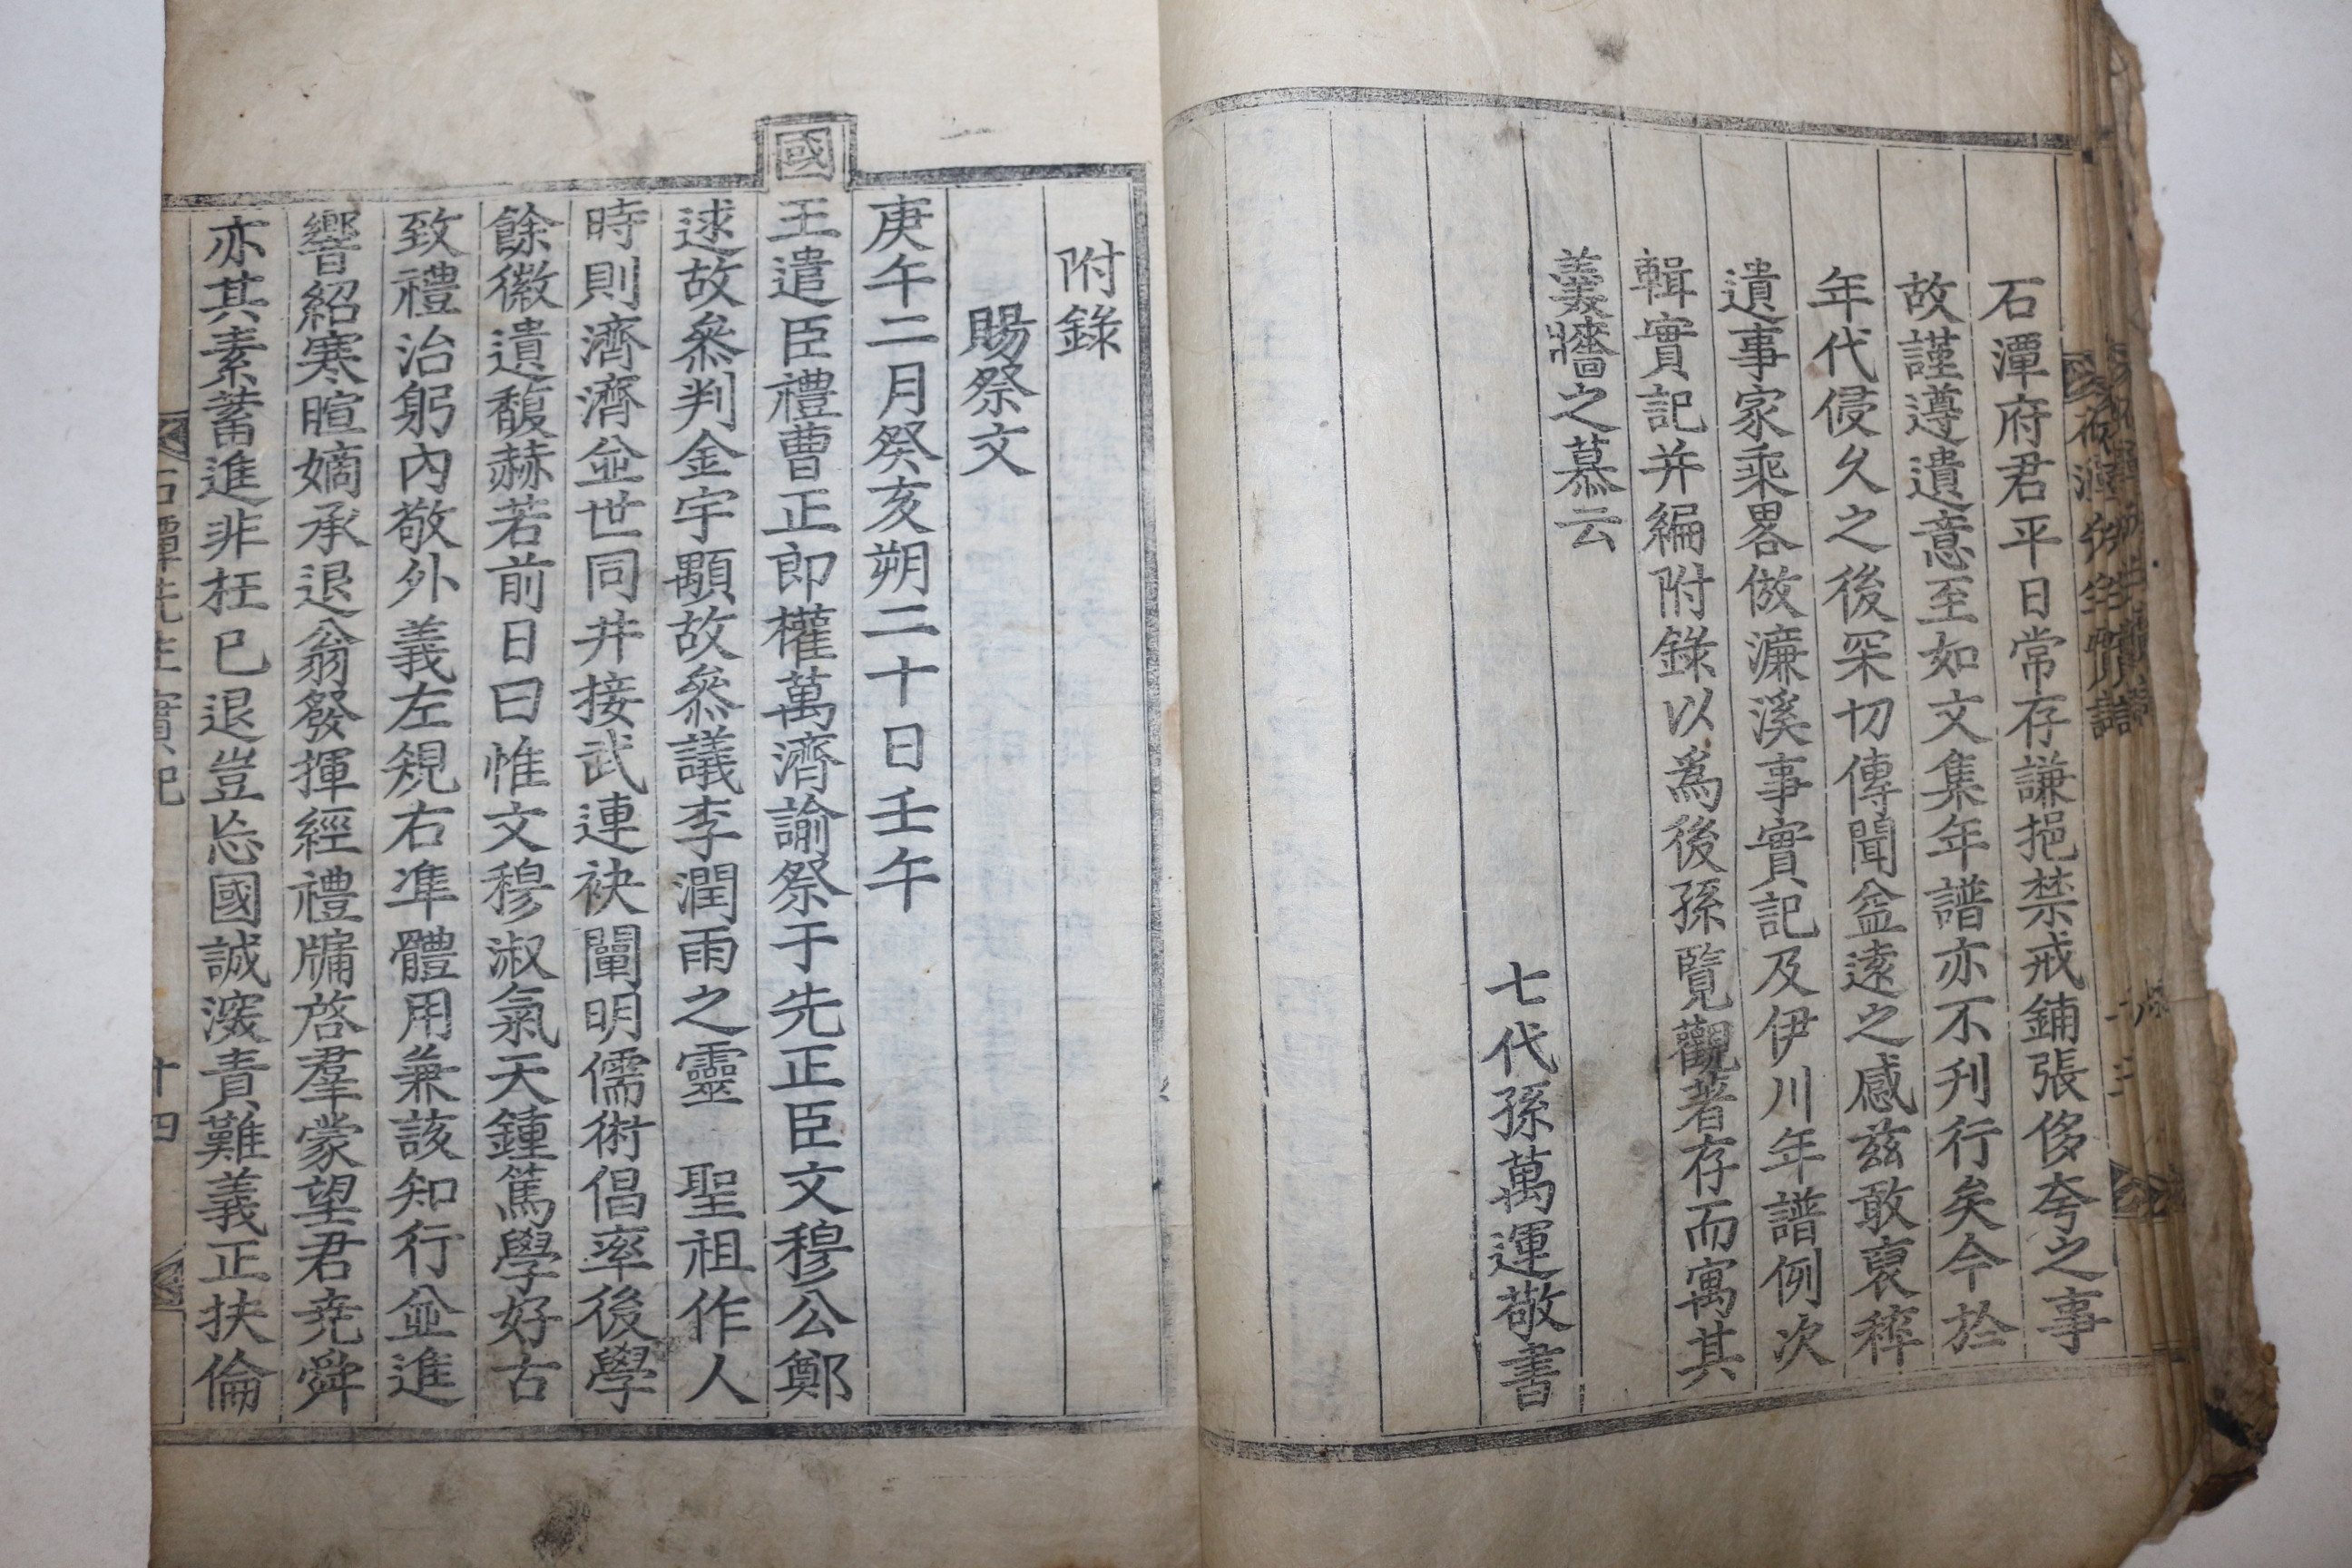 石潭府君平日常存謙挹禁戒鋪張侈夸之事
故謹遵遺意至如文集年譜亦不刋行矣今於
年代侵久之後罙切傳聞益逺之感兹敢裒稡
遺事家乘畧倣濂溪事實記及伊川年譜例次
輯實記并編附錄以爲後孫覽觀著存而寓其
羹墻之慕云
七代孫萬運敬書
附錄
賜祭文
庚午二月癸亥朔二十日壬午
國
王遣臣禮曹正郎權萬濟諭祭于先正臣文穆公鄭
逑故叅判金宇顒故叅議李潤雨之靈 聖祖作人
時則濟濟並世同井接武連袂闡明儒術倡率後學
餘徽遺馥赫若前日曰惟文穆淑氣天鍾篤學好古
致禮治躬內敬外義左規右準體用兼該知行並進
響紹寒暄嫡承退翁發揮經禮牖啓羣蒙望君堯舜
亦其素蓄進非枉已退豈忘國誠深責難義正扶倫
石潭先生實記
十四